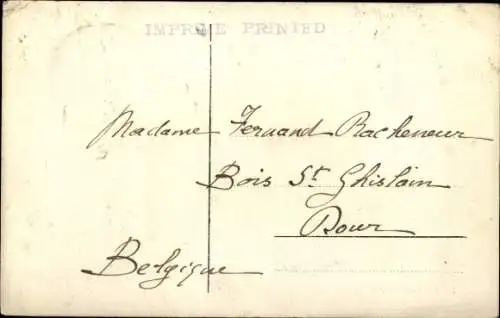 IMPRIME PRINTED
Madame Fernand Racheneur
Bois St Ghislain
Dour
Belgique